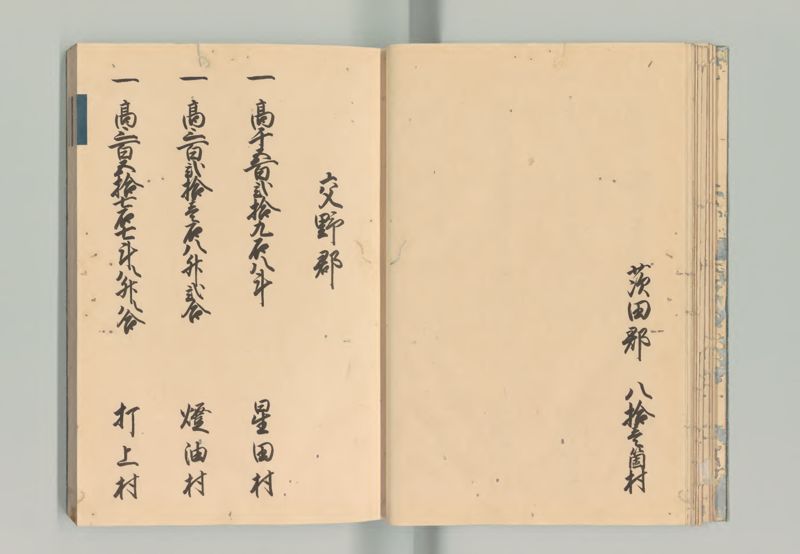 茨田郡 八拾壱箇村
交野郡
一 高千五百弐拾九石八斗 星田村
一 高三百弐拾壱石八升弐合 燈油村
一 高三百五拾七石七斗八升八合 打上村